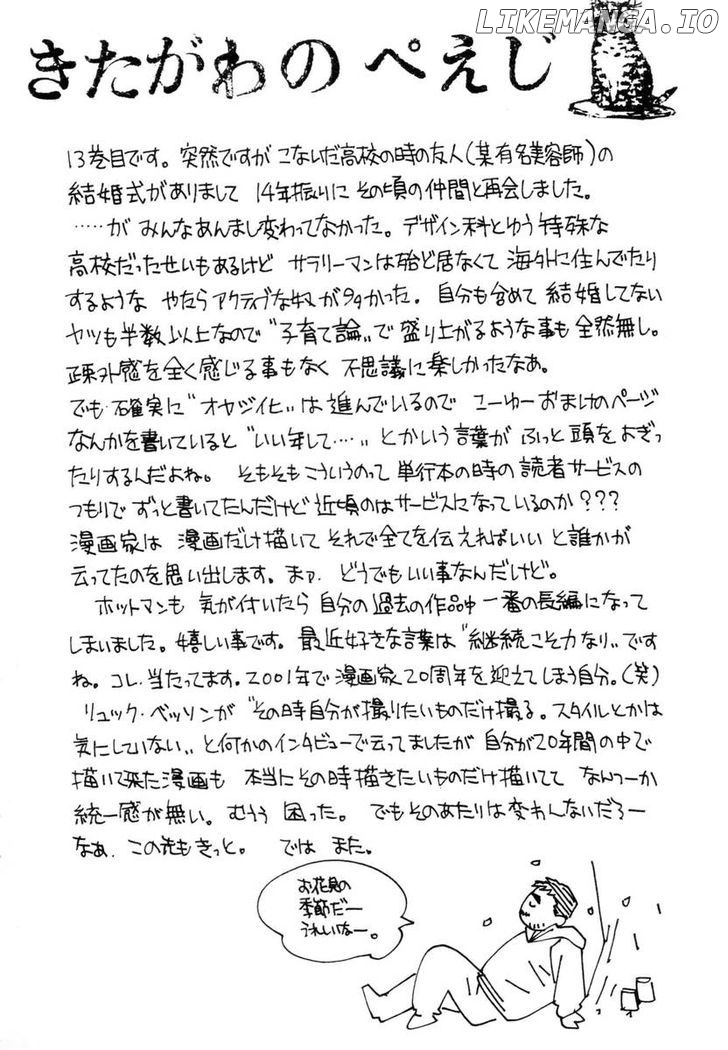 LIKEMANGA.IO
きたがわの ぺえじ
13巻目です。突然ですが こないだ高校の時の友人(某有名美容師)の
結婚式がありまして 14年振りに その頃の仲間と再会しました。
……が みんなあんまし変わってなかった。デザイン科とゆう特殊な
高校だったせいもあるけど サラリーマンは殆ど居なくて 海外に住んでたり
するような やたらアクティブな奴が多かった。自分も含めて 結婚してない
ヤツも半数以上なので〝子育て論〟で盛り上がるような事も全然無し。
疎外感を全く感じる事もなく 不思議に楽しかったなあ。
でも 確実に〝オヤジ化〟は進んでいるので こーゆーおまけのページ
なんかを書いていると〝いい年して…〟とかいう言葉が ふっと頭をよぎっ
たりするんだよね。 そもそもこういうのって 単行本の時の読者サービスの
つもりで ずっと書いてたんだけど 近頃のはサービスになっているのか???
漫画家は 漫画だけ描いて それで全てを伝えればいい と誰かが
云ってたのを思い出します。まァ. どうでもいい事なんだけど。
ホットマンも 気が付いたら 自分の過去の作品中 一番の長編になって
しまいました。嬉しい事です。最近好きな言葉は〝継続こそ力なり〟です
ね。コレ.当たってます。2001年で漫画家20周年を迎えてしまう自分。(笑)
リュック・ベッソンが〝その時自分が撮りたいものだけ撮る。スタイルとかは
気にしていない〟と何かのインタビューで云ってましたが 自分が20年間の中で
描いて来た漫画も 本当にその時描きたいものだけ描いてて なんつーか
統一感が無い。むぅぅ 困った。でもそのあたりは変わんないだろー
なぁ. この先もきっと。 では また。
お花見の
季節だー
うれしいなー。